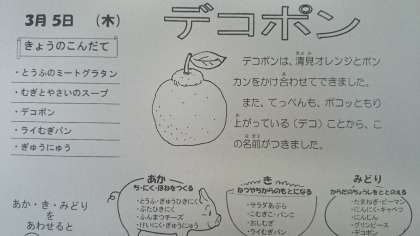 3月5日 （木）
デコポン
きょうのこんだて
・とうふのミートグラタン
・むぎとやさいのスープ
・デコポン
・ライむぎパン
・ぎゅうにゅう
デコポンは、清見オレンジとポン
カンをかけ合わせてできました。
また、てっぺんも、ボコッともり
上がっている（デコ）ことから、こ
の名前がつきました。
あか・き・みどり
を
あわせると
あか
ち・にく・ほねをつくる
・とうふ・ぎゅうひきにく
・ぶたひきにく
・ふんまつチーズ
・けいにく・ぎゅうにゅう
き
ねつやちからのもとになる
・サラダあぶら
・こむぎこ・パンこ
・おしむぎ
・ライむぎパン
みどり
からだのちょうしをととのえる
・たまねぎ・ピーマン
・にんにく・キャベツ
・にんじん
・グリンピース
・デコポン